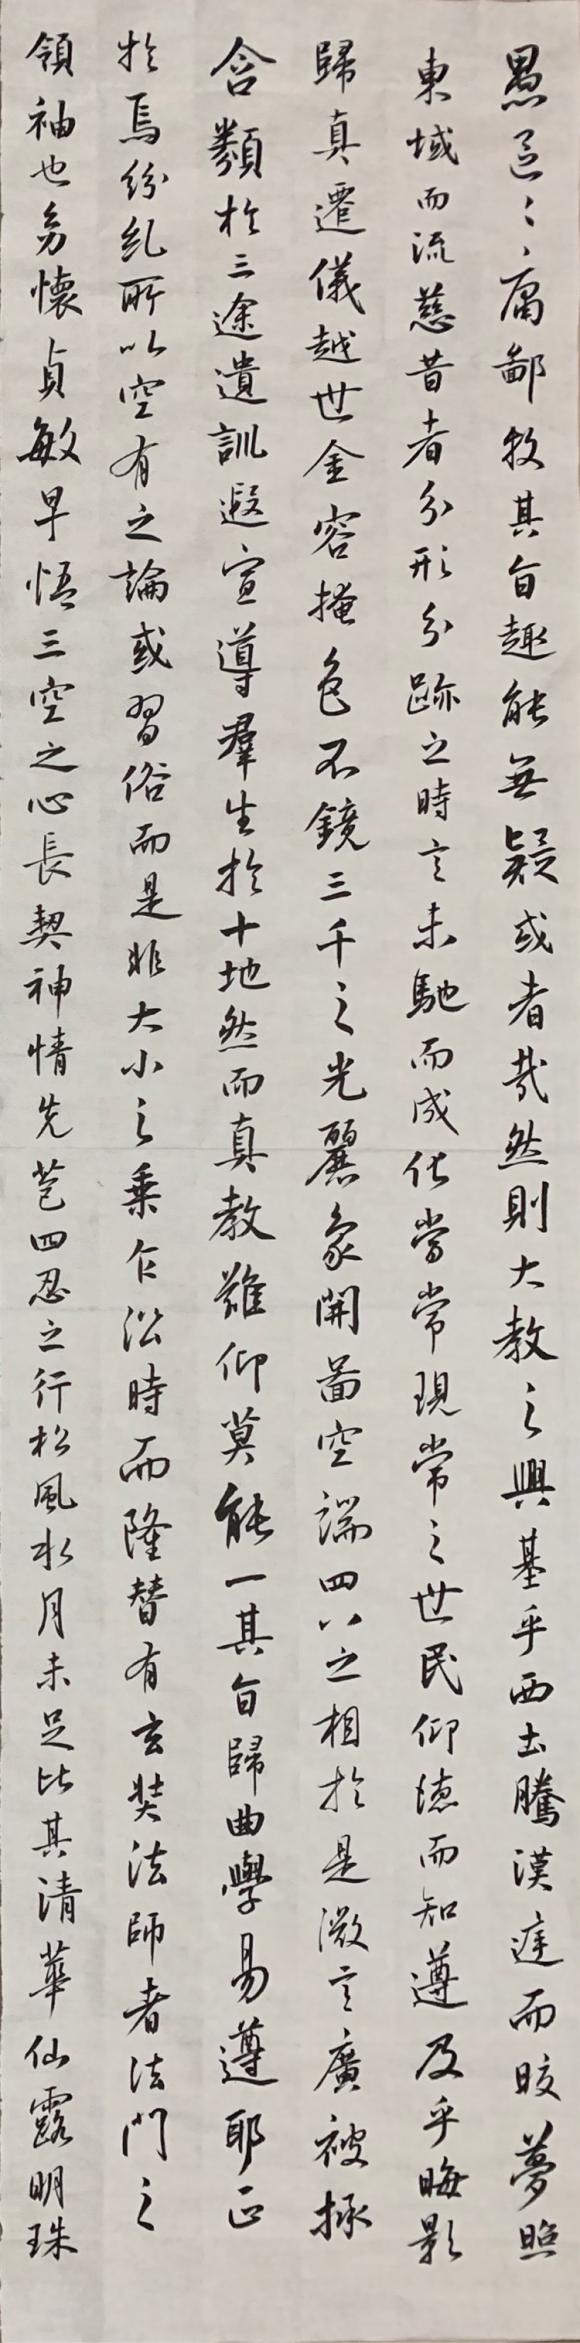 愚區々庸鄙投其旨趣能無疑或者哉然則大教之興基乎西土騰漢庭而皎夢照
東域而流慈昔者分形分跡之時言未馳而成化當常現常之世民仰德而知遵及乎晦影
歸真遷儀越世金容掩色不鏡三千之光麗象開圖空端四八之相於是微言廣被拯
含類於三途遺訓遐宣導羣生於十地然而真教難仰莫能一其旨歸曲學易遵耶正
於焉紛糺所以空有之論或習俗而是非大小之乘乍沿時而隆替有玄奘法師者法門之
領袖也幼懷貞敏早悟三空之心長契神情先苞四忍之行松風水月未足比其清華仙露明珠